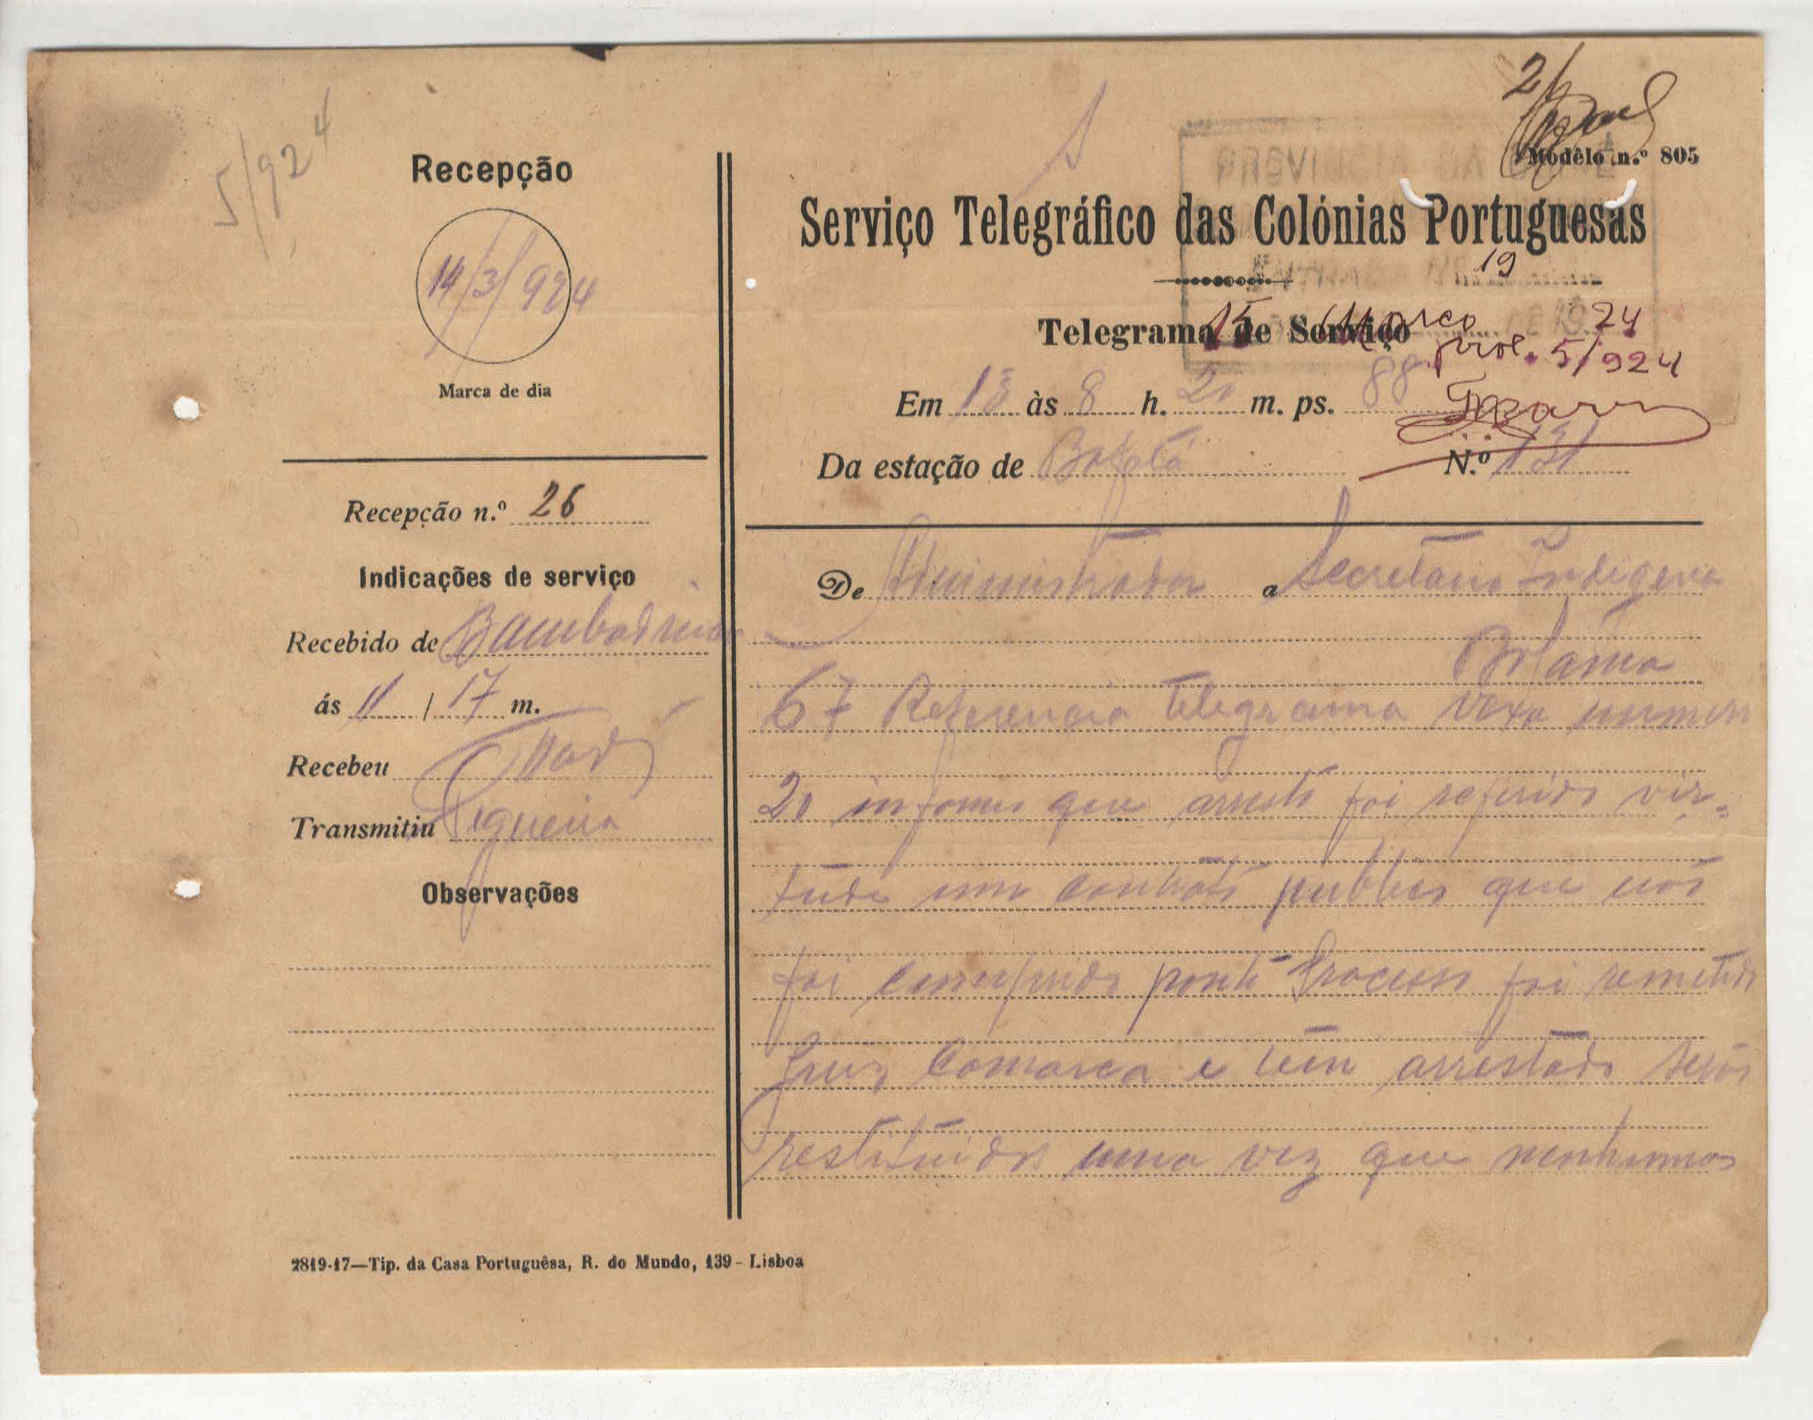 5/924
Recepção
14/3/924
Marca de dia
Recepção n.º 26
Indicações de serviço
Recebido de Bambadinca
ás 11 / 17 m.
Recebeu
Transmitiu Figueira
Observações
2819-17—Tip. da Casa Portuguêsa, R. do Mundo, 139 - Lisboa
Modêlo n.º 805
Serviço Telegráfico das Colónias Portuguesas
19
Telegrama de Serviço
15 Março 24
proc. 5/924
Em 13 às 8 h. 20 m. ps. 88
Da estação de Bafatá N.º 131
De Administrador a Secretario Indigena
Bolama
67 Referencia telegrama Vexa numero
20 informo que arresto foi referido vir-
tude um contrato publico que não
foi cumprido ponto Processo foi remetido
Juiz Comarca e tem arrestado serão
restituidos uma vez que nenhumas